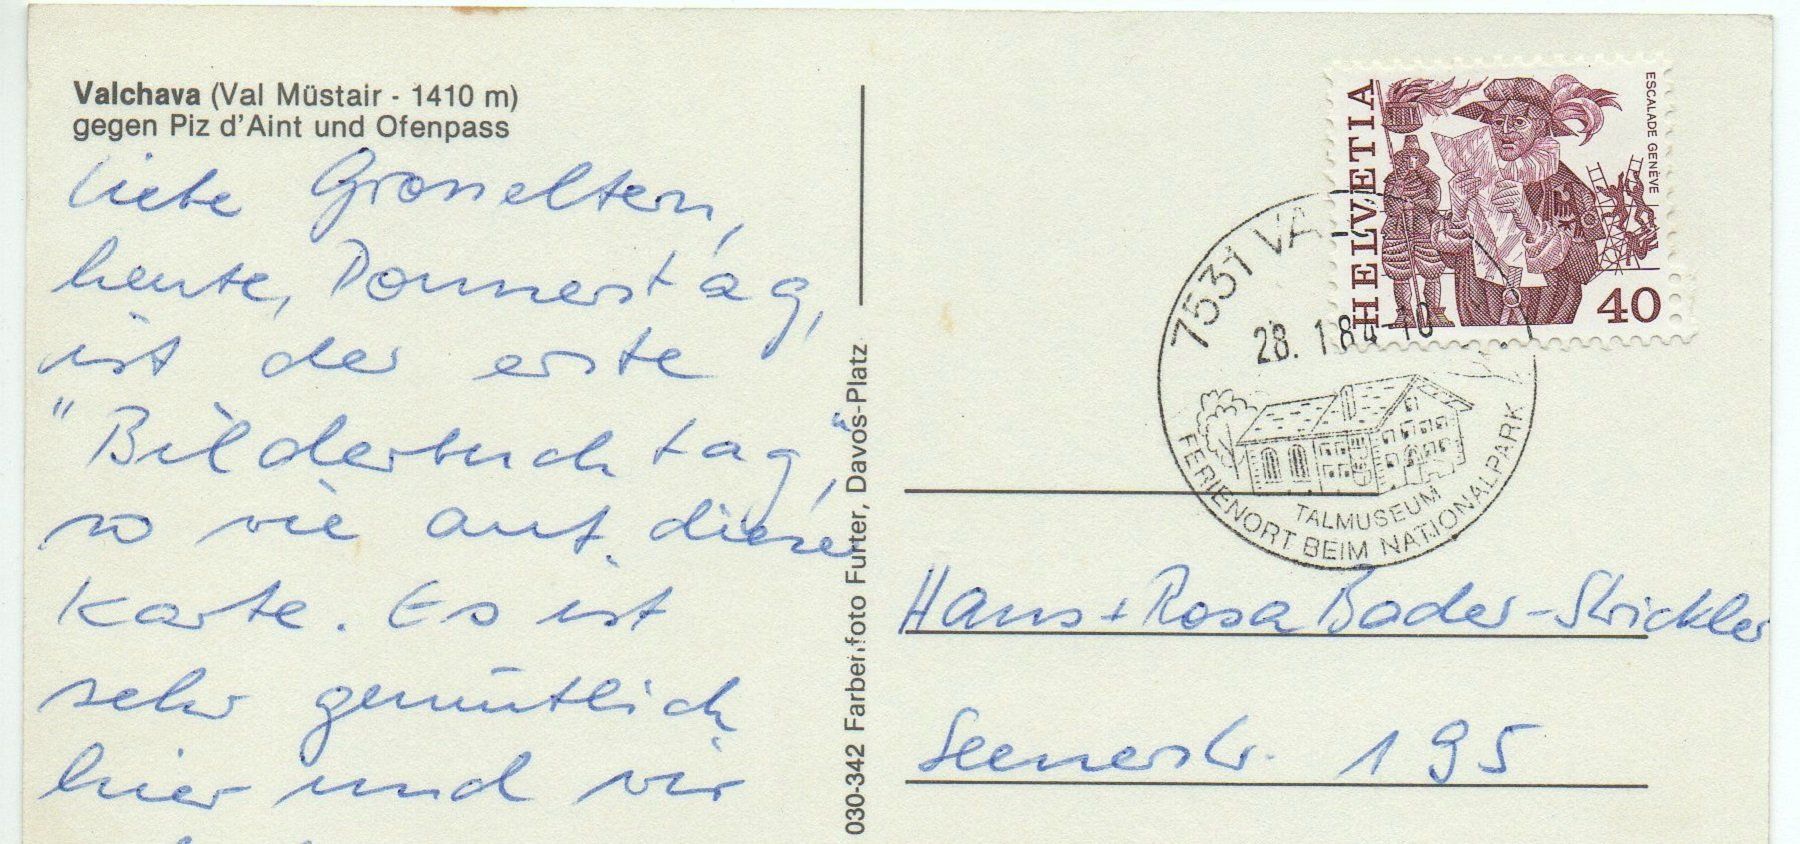 Valchava (Val Müstair - 1410 m)
gegen Piz d'Aint und Ofenpass
Liebe Grosseltern,
heute, Donnerstag,
ist der erste
"Bilderbuchtag",
so wie auf dieser
Karte. Es ist
sehr gemütlich
hier und wir
030-342 Farbenfoto Furter, Davos-Platz
HELVETIA
ESCALADE GENÈVE
40
7531 VA
28. 1.84-18
TALMUSEUM
FERIENORT BEIM NATIONALPARK
Hans + Rosa Bader-Strickler
Seenerstr. 195